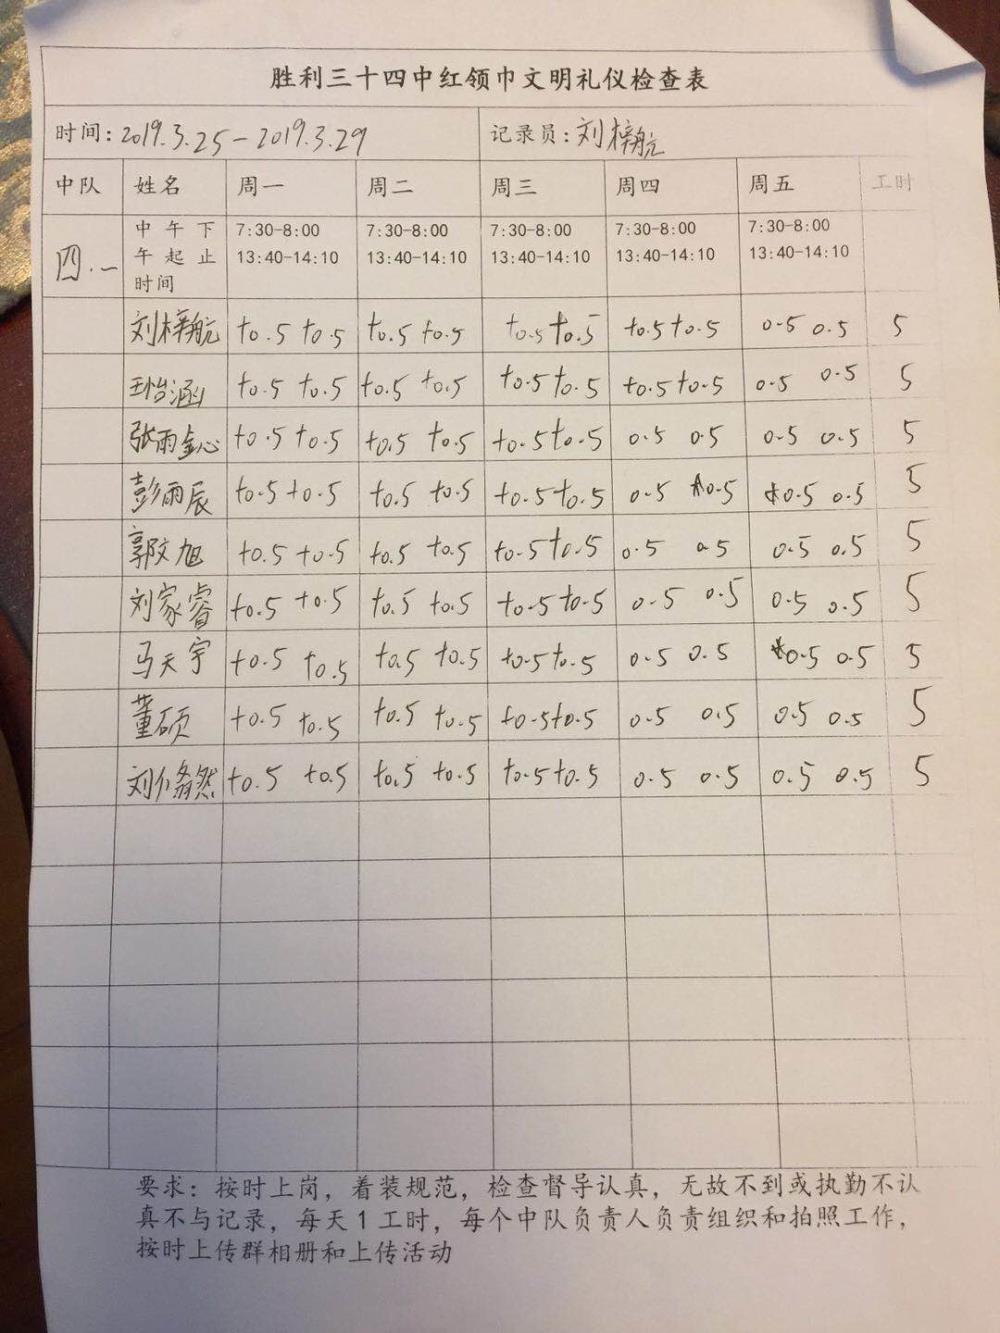 胜利三十四中红领巾文明礼仪检查表
时间:2019.3.25-2019.3.29 记录员:刘梓航
中队 姓名 周一 周二 周三 周四 周五 工时
四.一 中午下午起止时间 7:30-8:00 13:40-14:10 7:30-8:00 13:40-14:10 7:30-8:00 13:40-14:10 7:30-8:00 13:40-14:10 7:30-8:00 13:40-14:10
刘梓航 +0.5 +0.5 +0.5 +0.5 +0.5 +0.5 +0.5 +0.5 0.5 0.5 5
王怡涵 +0.5 +0.5 +0.5 +0.5 +0.5 +0.5 +0.5 +0.5 0.5 0.5 5
张雨鑫 +0.5 +0.5 +0.5 +0.5 +0.5 +0.5 0.5 0.5 0.5 0.5 5
彭雨辰 +0.5 +0.5 +0.5 +0.5 +0.5 +0.5 0.5 0.5 0.5 0.5 5
郭文旭 +0.5 +0.5 +0.5 +0.5 +0.5 +0.5 0.5 0.5 0.5 0.5 5
刘家睿 +0.5 +0.5 +0.5 +0.5 +0.5 +0.5 0.5 0.5 0.5 0.5 5
马天宇 +0.5 +0.5 +0.5 +0.5 +0.5 +0.5 0.5 0.5 0.5 0.5 5
董硕 +0.5 +0.5 +0.5 +0.5 +0.5 +0.5 0.5 0.5 0.5 0.5 5
+0.5 +0.5 +0.5 +0.5 +0.5 +0.5 0.5 0.5 0.5 0.5 5
要求：按时上岗，着装规范，检查督导认真，无故不到或执勤不认
真不与记录，每天1工时，每个中队负责人负责组织和拍照工作，
按时上传群相册和上传活动